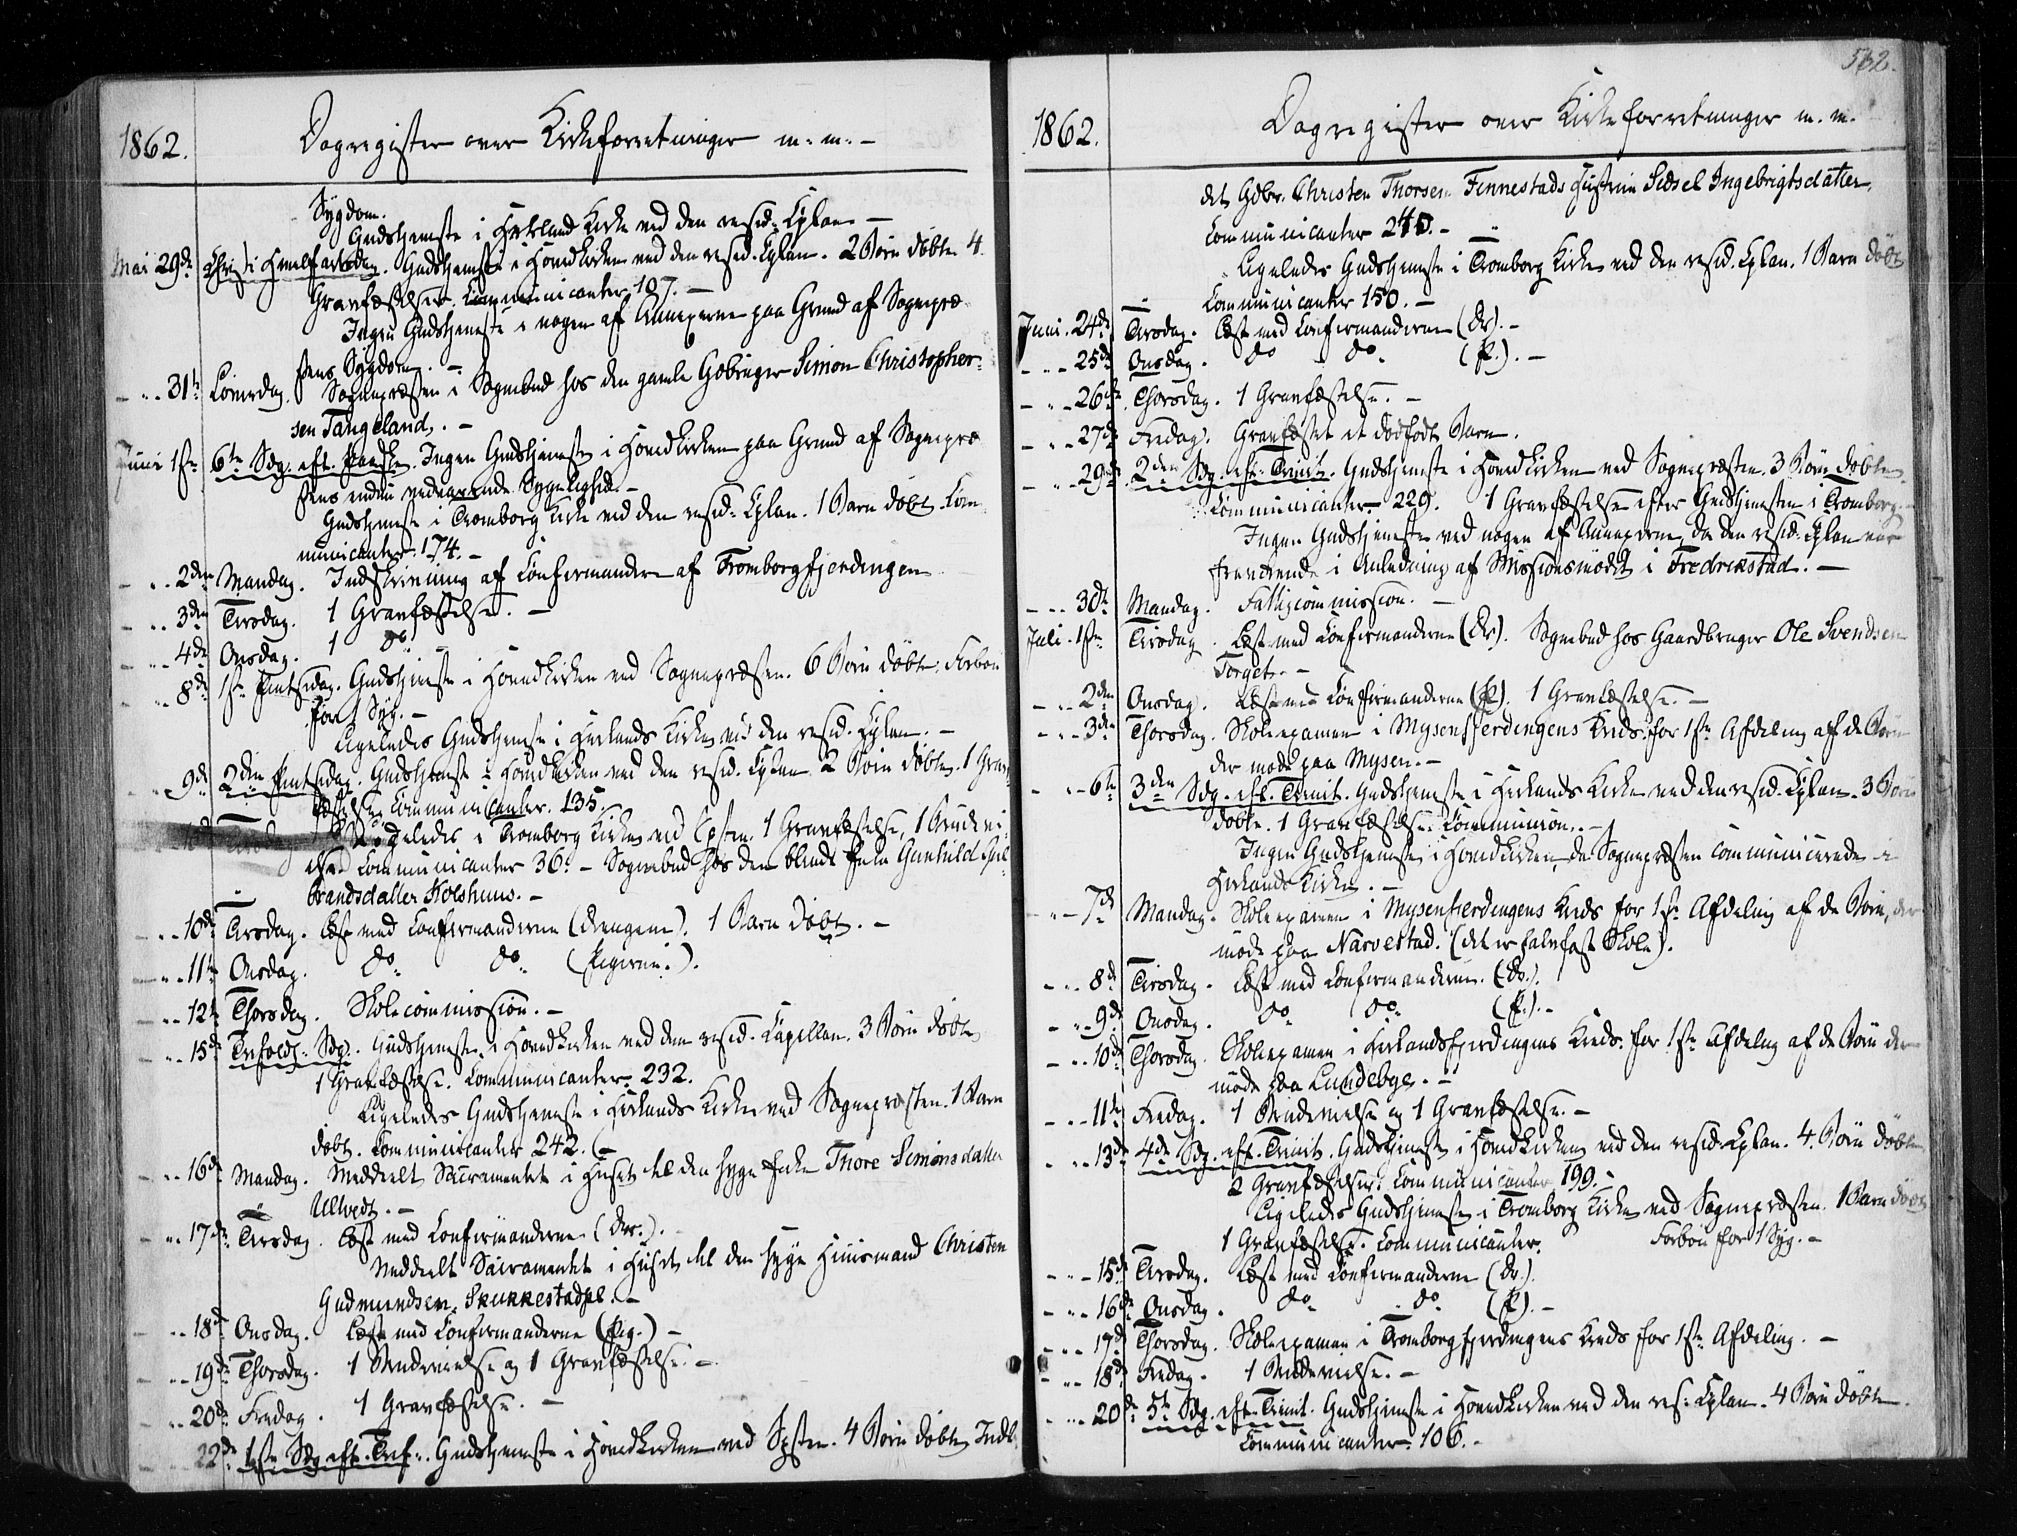 1862.
Dagregister over Kirkeforretninger m. m. -
Sygdom.
Gudstjeneste i Herland Kirke ved den resid. Cplan -
Mai 29de Christi Himelfartsdag. Gudstjeneste i Hovedkirken ved den resid. Cplan. 2 Børn døbte 4
Gravfæstelser. Communicanter 107. -
Ingen Gudstjeneste i nogen af Annexerne paa Grund af Sognepræ
stens Sygdom. -
- " - 31te Löverdag. Sognepræsten i Sognebud hos den gamle Gbruger Simon Christopher-
sen Tangeland. -
Juni 1ste 6te Sdg. eft. Paaske. Ingen Gudstjeneste i Hovedkirken paa Grund af Sognepræ
stens endnu vedvarende Sygelighed. -
Gudstjeneste i Tromborg Kirke ved den resid. Cplan. 1 Barn döbt. Com
municanter 174. -
- " - 2den Mandag. Indskrivning af Confirmander af Tromborgfjerdingen
- " - 3den Tirsdag. 1 Gravfæstelse. -
- " - 4de Onsdag. 1 do
- " - 8de 1ste Pintsedag. Gudstjeneste i Hovedkirken ved Sognepræsten. 6 Børn döbte. Forbön
for 1 Syg. -
Ligeledes Gudstjeneste i Herlands Kirke ved den resid. Cplan. -
9de 2den Pintsedag. Gudstjeneste i Hovedkirken ved den resid. Cplan 2 Börn döbte. 1 Grav
fæstelse. Communicanter. 135.
Ligeledes i Tromborg Kirke ved Spsten. 1 Gravfæstelse, 1 Brudevi-
else Communicanter 36. - Sognebud hos den blinde Pale Gunhild Gul
brandsdatter Kolshuus. -
- " - 10de Tirsdag. Læst med Confirmanderne (Drengene). 1 Barn döbt. -
- " - 11te Onsdag. do do (Pigerne.).
- " - 12te Thorsdag. Skolecommission. -
- " - 15de Trefoldg. Sdg. Gudstjeneste i Hovedkirken ved den resid. Capellan. 3 Börn döbte
1 Gravfæstelse. Communicanter 232.
Ligeledes Gudstjeneste i Herlands Kirke ved Sognepræsten. 1 Barn
döbt. Communicanter 242. -
- " - 16de Mandag. Meddeelt Sacramentet i Huset til den syge Enke Thore Simonsdatter
Ullvedt. -
- " - 17de Tirsdag. Læst med Confirmanderne (Dr.).
Meddeelt Sacramentet i Huset til den syge Huusmand Christen
Gudmundsen, Skukkestadpl. -
- " - 18de Onsdag. Læst med Confirmanderne (Pig.) -
- " - 19de Thorsdag. 1 Brudevielse og 1 Gravfæstelse. -
- " - 20de Fredag. 1 Gravfæstelse. -
22de 1ste Sdg eft. Tref. Gudstjeneste i Hovedkirken ved Spsten. 4 Börn döbte Indl.
562.
1862.
Dagregister over Kirkeforretninger m. m.
det Gdbr. Christen Thorsen Finnestads Hustrue Sidsel Ingebrigtsdatter.
Communicanter 240. -
Ligeledes Gudstjeneste i Tromborg Kirke ved den resid. Cplan. 1 Barn döbt
Communicanter 150. -
Juni. 24de Tirsdag. Læst med Confirmanderne (Dr). -
- " - 25de Onsdag. do do (P.). -
- " - 26de Thorsdag. 1 Gravfæstelse. -
- " - 27de Fredag. Gravfæstet et dödfödt Barn.
- " - 29de 2den Sdg. eft. Trinit. Gudstjeneste i Hovedkirken ved Sognepræsten. 3 Börn döbte
Communicanter 229. 1 Gravfæstelse efter Gudstjenesten i Tromborg.
Ingen Gudstjeneste ved nogen af Annexerne, da den resid. Cplan var
fraværende i Anledning af Missionsmödet i Fredrikstad. -
- " - 30te Mandag. Fattigcommission. -
Juli. 1ste Tirsdag. Læst med Confirmanderne (Dr). Sognebud hos Gaardbruger Ole Svendsen
Torget. -
- " - 2den Onsdag. Læst med Confirmanderne (P). 1 Gravfæstelse. -
- " - 3den Thorsdag. Skoleexamen i Mysenfjerdingens Kreds for 1ste Afdeling af de Börn
der møde paa Mysen. -
- " - 6te 3den Sdg. eft. Trinit. Gudstjeneste i Herlands Kirke ved den resid. Cplan. 3 Börn
döbte. 1 Gravfæstelse. Communion. -
Ingen Gudstjeneste i Hovedkirken, da Sognepræsten communicerede i
Herlands Kirke. -
- " - 7de Mandag. Skoleexamen i Mysenfjerdingens Kreds for 1ste Afdeling af de Börn, der
møde paa Narvestad. (det er halvfast Skole).
- " - 8de Tirsdag. Læst med Confirmanderne. (Dr.).
- " - 9de Onsdag. do do (P.). -
- " - 10de Thorsdag. Skoleexamen i Herlandsfjerdingens Kreds. for 1ste Afdelng af de Börn der
møde paa Lundebye. -
- " - 11te Fredag. 1 Brudevielse og 1 Gravfæstelse. -
- " - 13de 4de Sdg. eft. Trinit. Gudstjeneste i Hovedkirken ved den resid. Cplan. 4. Börn döbte
2 Gravfæstelser. Communicanter 199. -
Ligeledes Gudstjeneste i Tromborg Kirke ved Sognepræsten. 1 Barn döbt
1 Gravfæstelse. Communicanter. Forbön for 1 Syg. -
- " - 15de Tirsdag. Læst med Confirmanderne (Dr.).
- " - 16de Onsdag. do do (P). -
- " - 17de Thorsdag. Skoleexamen i Tromborgfjerdingens Kreds for 1ste Afdeling. -
- " - 18de Fredag. 1 Brudevielse. -
- " - 20de 5te Sdg. eft. Trinit. Gudstjeneste i Hovedkirken ved den res. Cplan. 4 Börn döbte
Communicanter. 106. -